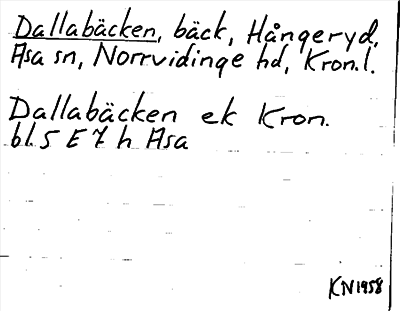 Dallabäcken, bäck, Hångeryd,
Asa sn, Norrvidinge hd, Kron.l.
Dallabäcken ek Kron.
bl. 5 E 7 h Asa
KN1958